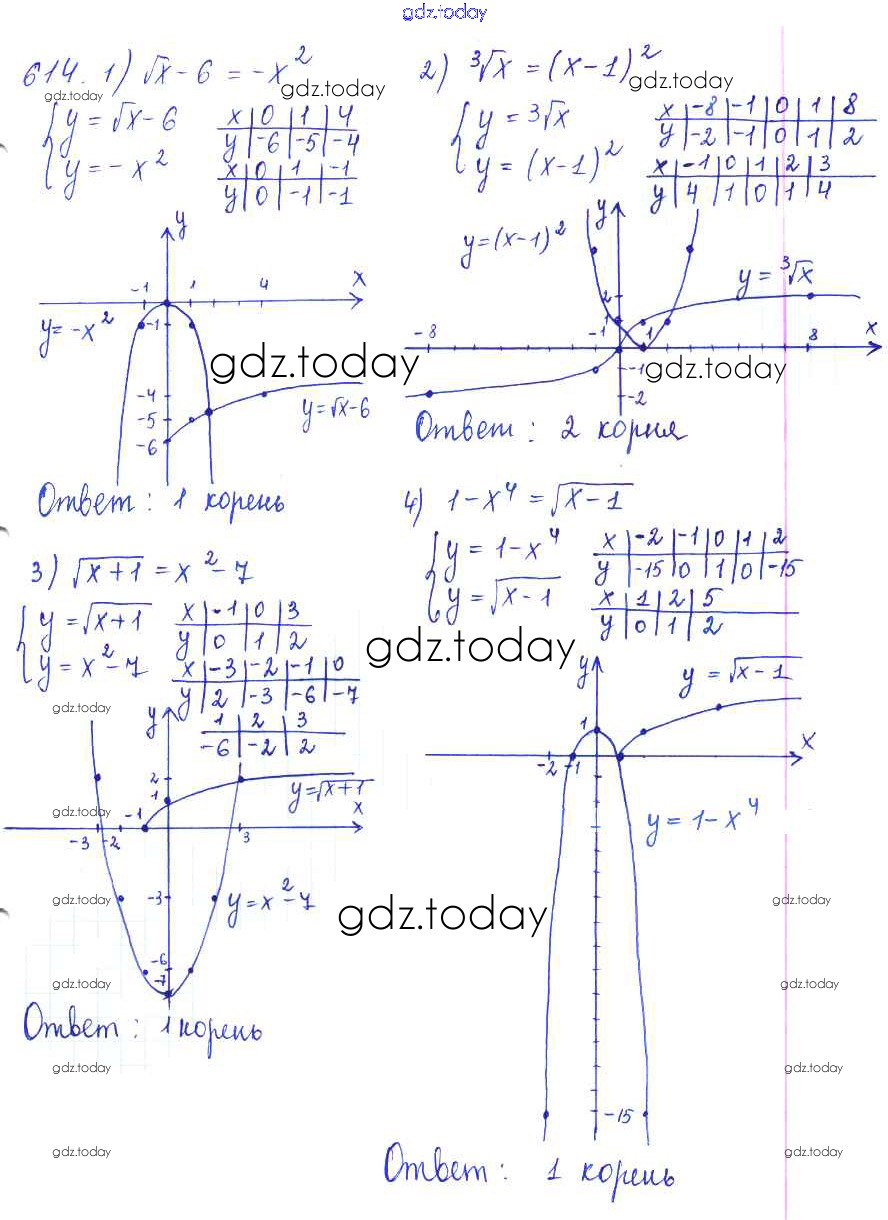 gdz.today
614. 1) √x - 6 = -x²
gdz.today
gdz.today
y = √x - 6
y = -x²
x | 0 | 1 | 4
y | -6 | -5 | -4
x | 0 | 1 | -1
y | 0 | -1 | -1
y
-1 1 4 x
y = -x²
-1
gdz.today
-4
-5
-6
y = √x - 6
Ответ: 1 корень
2) ³√x = (x-1)²
gdz.today
y = ³√x
y = (x-1)²
x | -8 | -1 | 0 | 1 | 8
y | -2 | -1 | 0 | 1 | 2
x | -1 | 0 | 1 | 2 | 3
y | 4 | 1 | 0 | 1 | 4
y
y = (x-1)²
y = ³√x
2
1
-8 -1 1 8 x
-1
gdz.today
-2
Ответ: 2 корня
3) √x+1 = x² - 7
y = √x+1
y = x² - 7
x | -1 | 0 | 3
y | 0 | 1 | 2
x | -3 | -2 | -1 | 0
y | 2 | -3 | -6 | -7
1 | 2 | 3
-6 | -2 | 2
gdz.today
gdz.today
y
2
1
y = √x+1
gdz.today
-3 -2 -1 3 x
-3
y = x² - 7
gdz.today
gdz.today
-6
-7
gdz.today
Ответ: 1 корень
gdz.today
gdz.today
4) 1 - x⁴ = √x-1
y = 1 - x⁴
y = √x-1
x | -2 | -1 | 0 | 1 | 2
y | -15 | 0 | 1 | 0 | -15
x | 1 | 2 | 5
y | 0 | 1 | 2
y
y = √x-1
1
-2 -1 x
y = 1 - x⁴
gdz.today
gdz.today
-15
gdz.today
gdz.today
Ответ: 1 корень